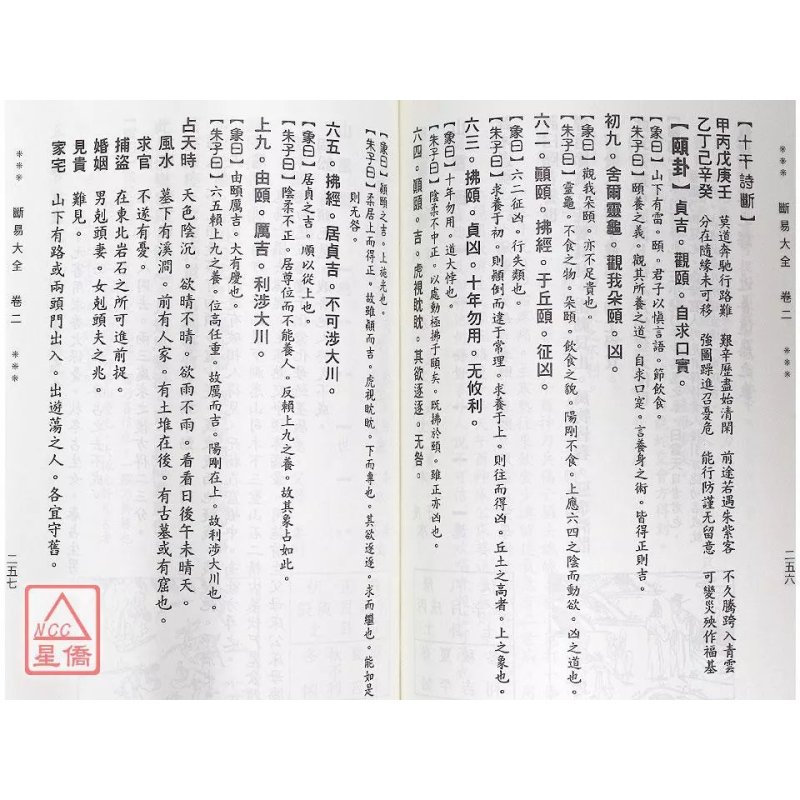 ＊＊＊　斷易大全　卷二　＊＊＊
二五六
【十干詩斷】
甲丙戊庚壬　莫道奔馳行路難　艱辛歷盡始清閑　前途若遇朱紫客　不久騰踌入青雲
乙丁己辛癸　分在隨緣未可移　強圖躁進召憂危　能行防謹无留意　可變災殃作福基
【頤卦】貞吉。觀頤。自求口實。
【彖曰】山下有雷，頤。君子以慎言語。節飲食。
【朱子曰】頤養之義。觀其所養之道。自求口實。言養身之術。皆得正則吉。
初九。舍爾靈龜。觀我朵頤。凶。
【象曰】觀我朵頤。亦不足貴也。
【朱子曰】靈龜。不食之物。朵頤。飲食之貌。陽剛不食。上應六四之陰而動欲。凶之道也。
六二。顚頤。拂經。于丘頤。征凶。
【象曰】六二征凶。行失類也。
【朱子曰】求養于初。則顛倒而違于常理。求養于上。則往而得凶。丘土之高者。上之象也。
六三。拂頤。貞凶。十年勿用。无攸利。
【象曰】十年勿用。道大悖也。
【朱子曰】陰柔不中正。以處動極拂于頤矣。既拂於頤。雖正亦凶也。
六四。顚頤。吉。虎視眈眈。其欲逐逐。无咎。
【象曰】顛頤之吉。上施光也。
【朱子曰】柔居上而得正。故雖顛而吉。虎視眈眈。下而專也。其欲逐逐。求而繼也。能如是
則无咎。
六五。拂經。居貞吉。不可涉大川。
【象曰】居貞之吉。順以從上也。
【朱子曰】陰柔不正。居尊位而不能養人。反賴上九之養。故其象占如此。
上九。由頤。厲吉。利涉大川。
【象曰】由頤厲吉。大有慶也。
【朱子曰】六五賴上九之養。位高任重。故厲而吉。陽剛在上。故利涉大川也。
占天時　天色陰沉。欲晴不晴。欲雨不雨。看看日後午未晴天。
風水　墓下有溪澗。前有人家。有土堆在後。有古墓或有窟也。
求官　不遂有憂。
捕盜　在東北岩石之所可進前捉。
婚姻　男剋頭妻。女剋頭夫之兆。
見貴　難見。
家宅　山下有路或兩頭門出入。出遊蕩之人。各宜守舊。
＊＊＊　斷易大全　卷二　＊＊＊
二五七
NCC
星僑